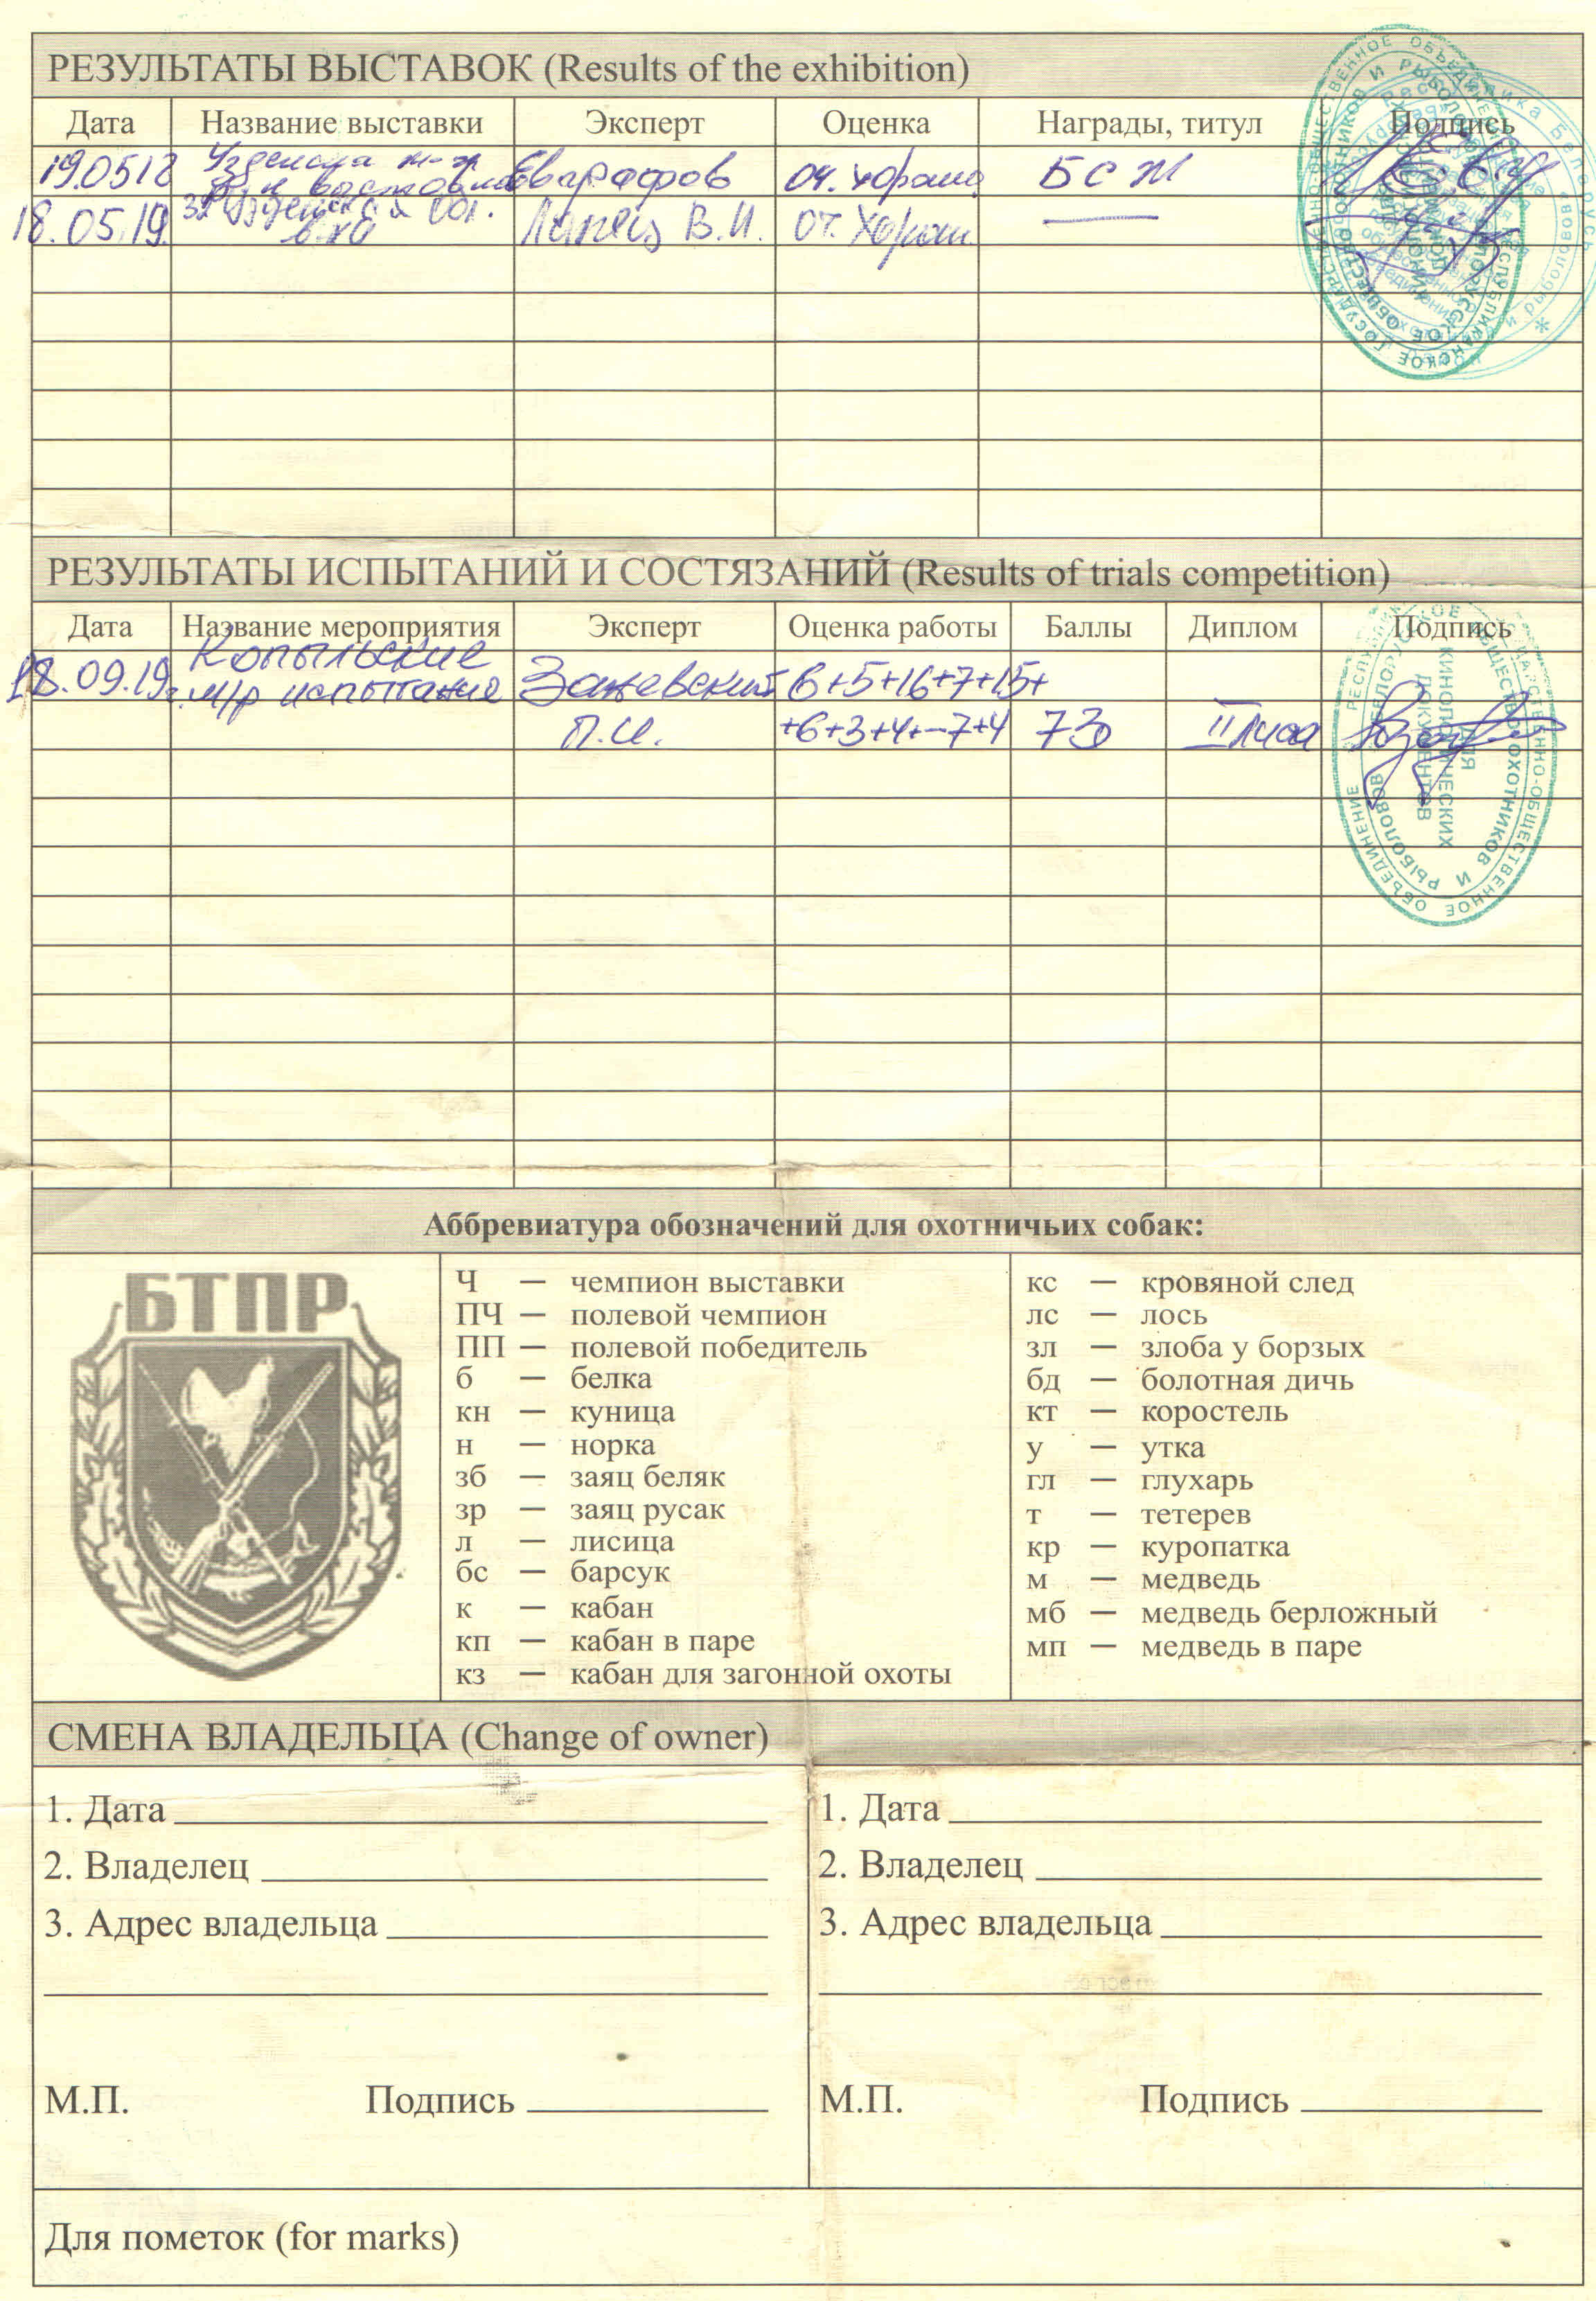 РЕЗУЛЬТАТЫ ВЫСТАВОК (Results of the exhibition)
Дата Название выставки Эксперт Оценка Награды, титул Подпись
19.0518 Узденская выставка оч. хорошо БСМ
18.05.19. Лапец В.И. оч. хорош.
РЕЗУЛЬТАТЫ ИСПЫТАНИЙ И СОСТЯЗАНИЙ (Results of trials competition)
Дата Название мероприятия Эксперт Оценка работы Баллы Диплом Подпись
Копыльские
18.09.19г. м/р испытание 6+5+16+7+15+
П.И. +6+3+4+-7+4 73 II лиса
РЕСПУБЛИКАНСКОЕ ГОСУДАРСТВЕННО-ОБЩЕСТВЕННОЕ ОБЪЕДИНЕНИЕ
БЕЛОРУССКОЕ ОБЩЕСТВО ОХОТНИКОВ И РЫБОЛОВОВ
ДЛЯ
КИНОЛОГИЧЕСКИХ
ДОКУМЕНТОВ
Аббревиатура обозначений для охотничьих собак:
БТПР
Ч — чемпион выставки
ПЧ — полевой чемпион
ПП — полевой победитель
б — белка
кн — куница
н — норка
зб — заяц беляк
зр — заяц русак
л — лисица
бс — барсук
к — кабан
кп — кабан в паре
кз — кабан для загонной охоты
кс — кровяной след
лс — лось
зл — злоба у борзых
бд — болотная дичь
кт — коростель
у — утка
гл — глухарь
т — тетерев
кр — куропатка
м — медведь
мб — медведь берложный
мп — медведь в паре
СМЕНА ВЛАДЕЛЬЦА (Change of owner)
1. Дата
2. Владелец
3. Адрес владельца
М.П. Подпись
1. Дата
2. Владелец
3. Адрес владельца
М.П. Подпись
Для пометок (for marks)